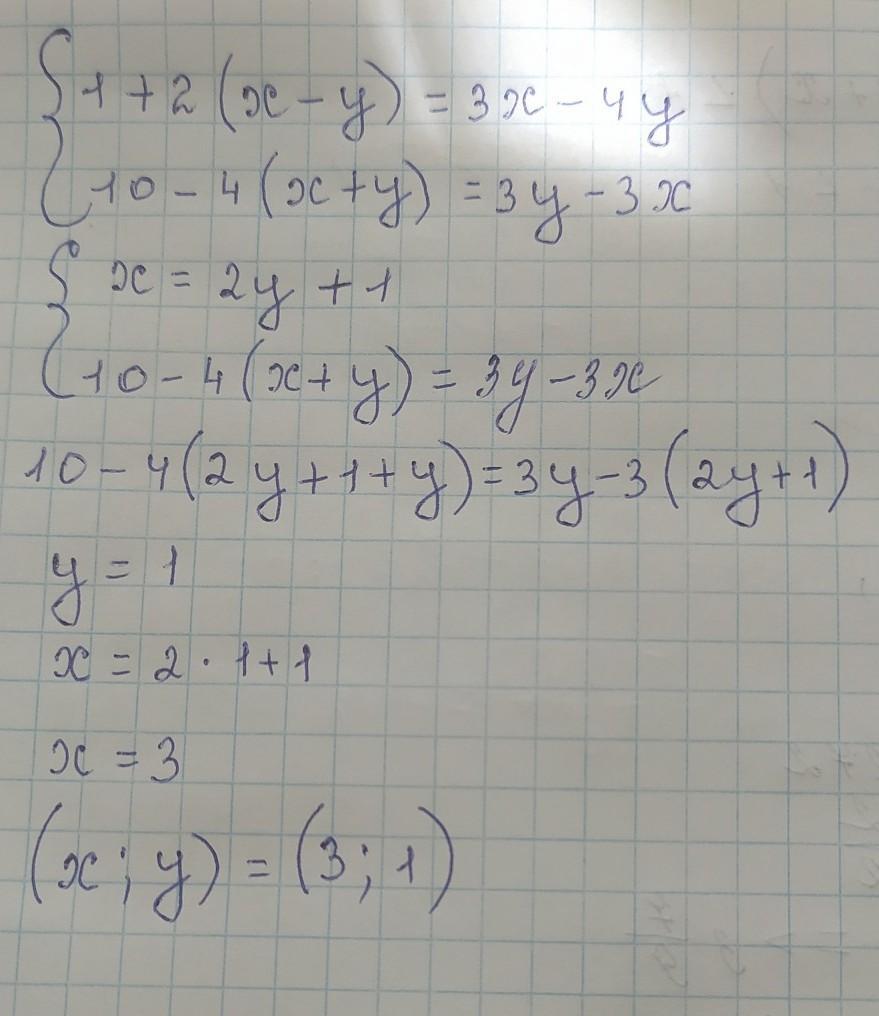 1 + 2 (x - y) = 3x - 4y
10 - 4 (x + y) = 3y - 3x
x = 2y + 1
10 - 4 (x + y) = 3y - 3x
10 - 4 (2y + 1 + y) = 3y - 3 (2y + 1)
y = 1
x = 2 · 1 + 1
x = 3
(x; y) = (3; 1)